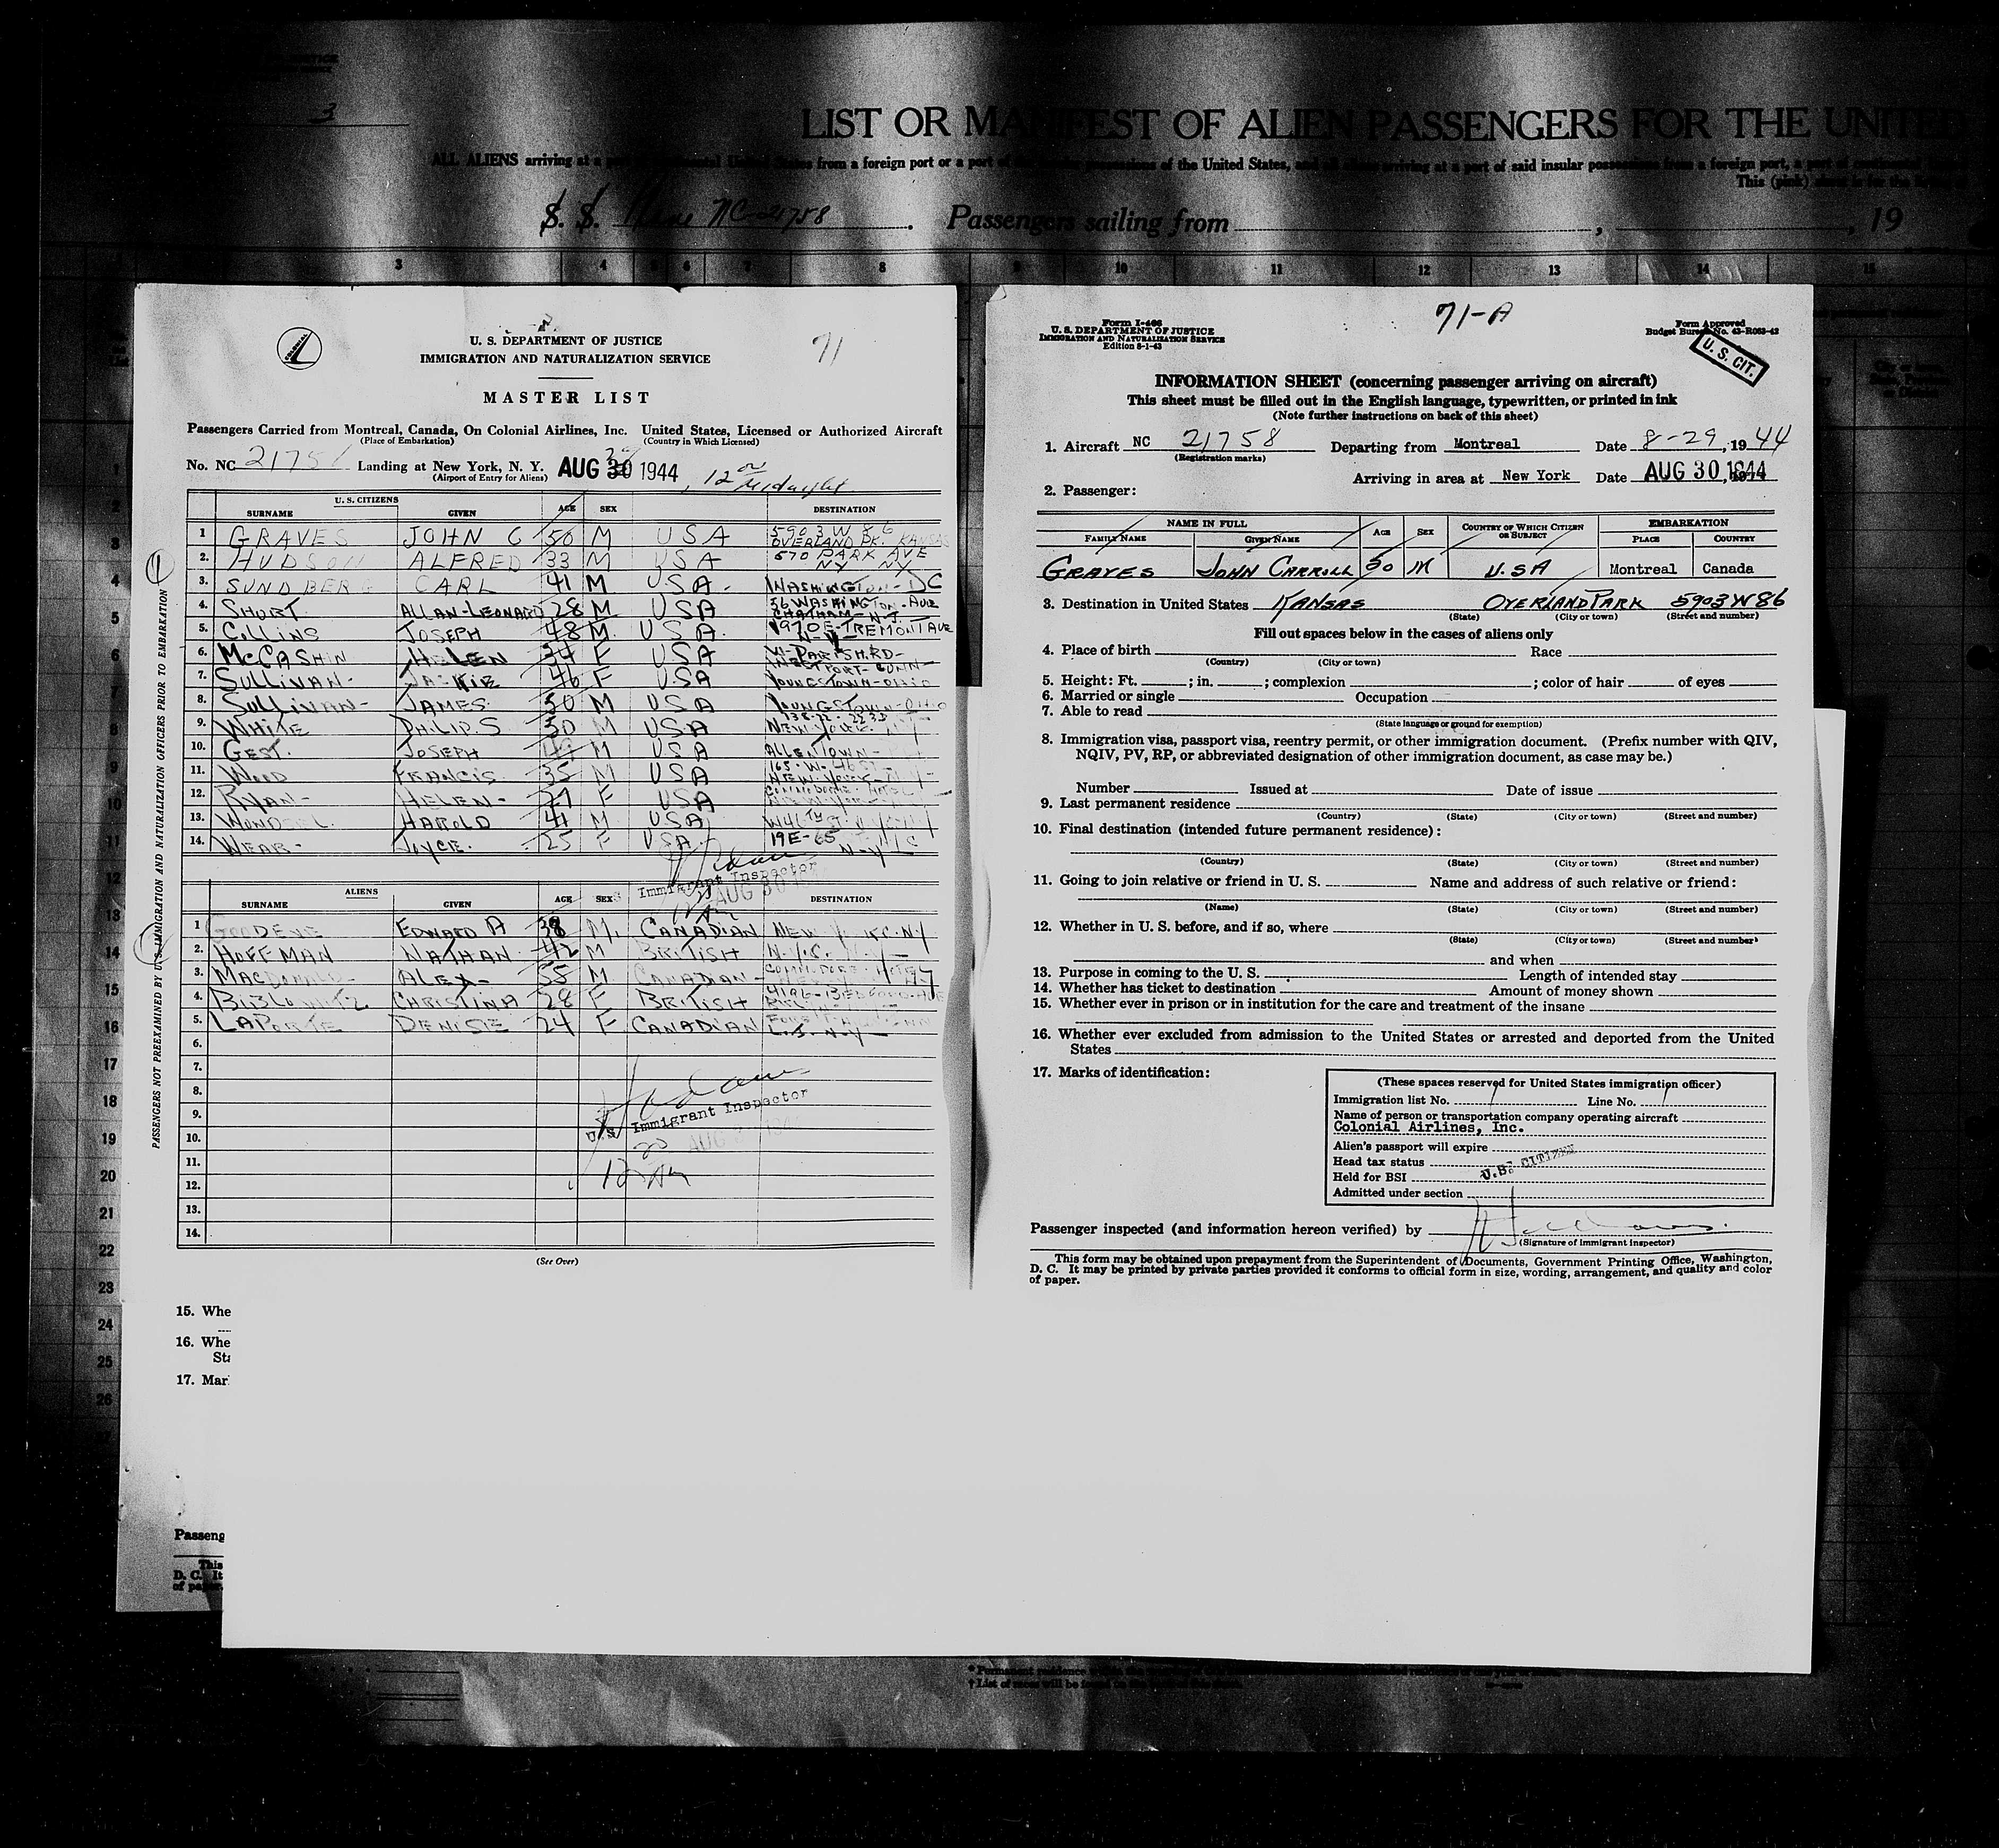 3
LIST OR MANIFEST OF ALIEN PASSENGERS FOR THE UNIT
ALL ALIENS arriving at a port of continental United States from a foreign port or a port of the insular possessions of the United States, and all aliens arriving at a port of said insular possessions from a foreign port, a port of
This (pink) sheet is for the
S. S. NC 21758. Passengers sailing from , , 19
3 4 5 6 7 8 9 10 11 12 13 14 15
71
U. S. DEPARTMENT OF JUSTICE
IMMIGRATION AND NATURALIZATION SERVICE
MASTER LIST
Passengers Carried from Montreal, Canada, On Colonial Airlines, Inc. United States, Licensed or Authorized Aircraft
(Place of Embarkation) (Country in Which Licensed)
No. NC 21758 Landing at New York, N. Y. AUG 30 1944, 12 Midnight
(Airport of Entry for Aliens)
U. S. CITIZENS
SURNAME GIVEN AGE SEX DESTINATION
1 GRAVES JOHN C 50 M USA 5903 W 86 OVERLAND PK. KANSAS
2. HUDSON ALFRED 33 M USA 570 PARK AVE NY NY
3. SUNDBERG CARL 41 M USA- WASHINGTON-DC
4. SHORT ALLAN-LEONARD 28 M USA 36 WASHINGTON-AVE CHATHAM-N-J-
5. COLLINS JOSEPH 48 M. USA. 1970 E-TREMONT AVE N-Y-
6. McCASHIN HELEN 34 F USA W-PARISH.RD- WESTPORT-CONN-
7. SULLIVAN- JACKIE 46 F USA YOUNGSTOWN-OHIO
8. SULLIVAN- JAMES. 50 M USA YOUNGSTOWN-OHIO
9. WHITE PHILIP.S 30 M USA NEW YORK. NY-
10. GEST. JOSEPH 49 M USA ALLENTOWN-
11. WOOD FRANCIS 35 M USA 165-W-46 ST- NEW-YORK-N-Y-
12. RYAN- HELEN- 27 F USA
13. HAROLD 41 M. USA
14. WEAR- JOYCE. 25 F USA. 19E-65 N-Y-C
Immigrant Inspector
AUG 30
ALIENS
SURNAME GIVEN AGE SEX DESTINATION
1 GOODENE EDWARD A 38 M. CANADIAN NEW YORK. NY
2. HOFFMAN NATHAN 42 M BRITISH N.Y.C.
3. MACDONALD- ALEX- 55 M CANADIAN- COMMODORE-HOTEL
4. CHRISTINA 28 F BRITISH 4196-BEDFORD-AVE
5. LAPORTE DENISE 24 F CANADIAN FOREST-
6.
7.
8.
9.
10.
11.
12.
13.
14.
U.S. Immigrant Inspector
12 AM
(See Over)
PASSENGERS NOT PREEXAMINED BY U. S. IMMIGRATION AND NATURALIZATION OFFICERS PRIOR TO EMBARKATION
15. Whe
16. Whe
Sta
17. Mar
Passeng
This
D. C. It
of paper.
71-A
Form I-466
U. S. DEPARTMENT OF JUSTICE
IMMIGRATION AND NATURALIZATION SERVICE
Edition 8-1-43
Form Approved
Budget Bureau No. 43-R063-42
U. S. CIT.
INFORMATION SHEET (concerning passenger arriving on aircraft)
This sheet must be filled out in the English language, typewritten, or printed in ink
(Note further instructions on back of this sheet)
1. Aircraft NC 21758 Departing from Montreal Date 8-29, 1944
(Registration marks)
Arriving in area at New York Date AUG 30 1944
2. Passenger:
NAME IN FULL AGE SEX COUNTRY OF WHICH CITIZEN OR SUBJECT EMBARKATION
FAMILY NAME GIVEN NAME PLACE COUNTRY
GRAVES JOHN CARROLL 50 M U.SA Montreal Canada
3. Destination in United States KANSAS OVERLAND PARK 5903 W 86
(State) (City or town) (Street and number)
Fill out spaces below in the cases of aliens only
4. Place of birth Race
(Country) (City or town)
5. Height: Ft. ; in. ; complexion ; color of hair of eyes
6. Married or single Occupation
7. Able to read
(State language or ground for exemption)
8. Immigration visa, passport visa, reentry permit, or other immigration document. (Prefix number with QIV,
NQIV, PV, RP, or abbreviated designation of other immigration document, as case may be.)
Number Issued at Date of issue
9. Last permanent residence
(Country) (State) (City or town) (Street and number)
10. Final destination (intended future permanent residence):
(Country) (State) (City or town) (Street and number)
11. Going to join relative or friend in U. S. Name and address of such relative or friend:
(Name) (State) (City or town) (Street and number)
12. Whether in U. S. before, and if so, where
(State) (City or town) (Street and number)
and when
13. Purpose in coming to the U. S. Length of intended stay
14. Whether has ticket to destination Amount of money shown
15. Whether ever in prison or in institution for the care and treatment of the insane
16. Whether ever excluded from admission to the United States or arrested and deported from the United
States
17. Marks of identification:
(These spaces reserved for United States immigration officer)
Immigration list No. 1 Line No. 1
Name of person or transportation company operating aircraft
Colonial Airlines, Inc.
Alien's passport will expire
Head tax status
Held for BSI U.S. CITIZEN
Admitted under section
Passenger inspected (and information hereon verified) by
(Signature of Immigrant Inspector)
This form may be obtained upon prepayment from the Superintendent of Documents, Government Printing Office, Washington,
D. C. It may be printed by private parties provided it conforms to official form in size, wording, arrangement, and quality and color
of paper.
* Permanent residence
† List of races will be found